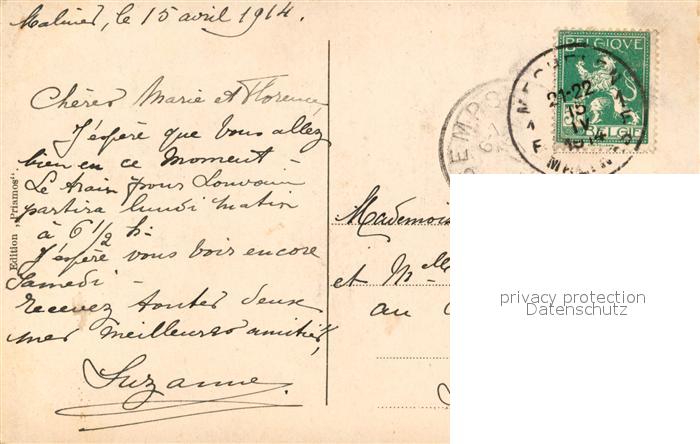 Malines, le 15 avril 1914.
Chères Marie et Florence,
J'espère que vous allez
bien en ce moment -
Le train pour Louvain
partira lundi matin
à 6 1/2 h.
J'espère vous voir encore
Samedi -
Recevez toutes deux
mes meilleures amitiés,
Suzanne.
Edition „Priamos“.
BELGIQUE
5
BELGIË
MECHELEN
21-22
15
IV
1914
MALINES
Mademois
et Mlle
au
privacy protection
Datenschutz